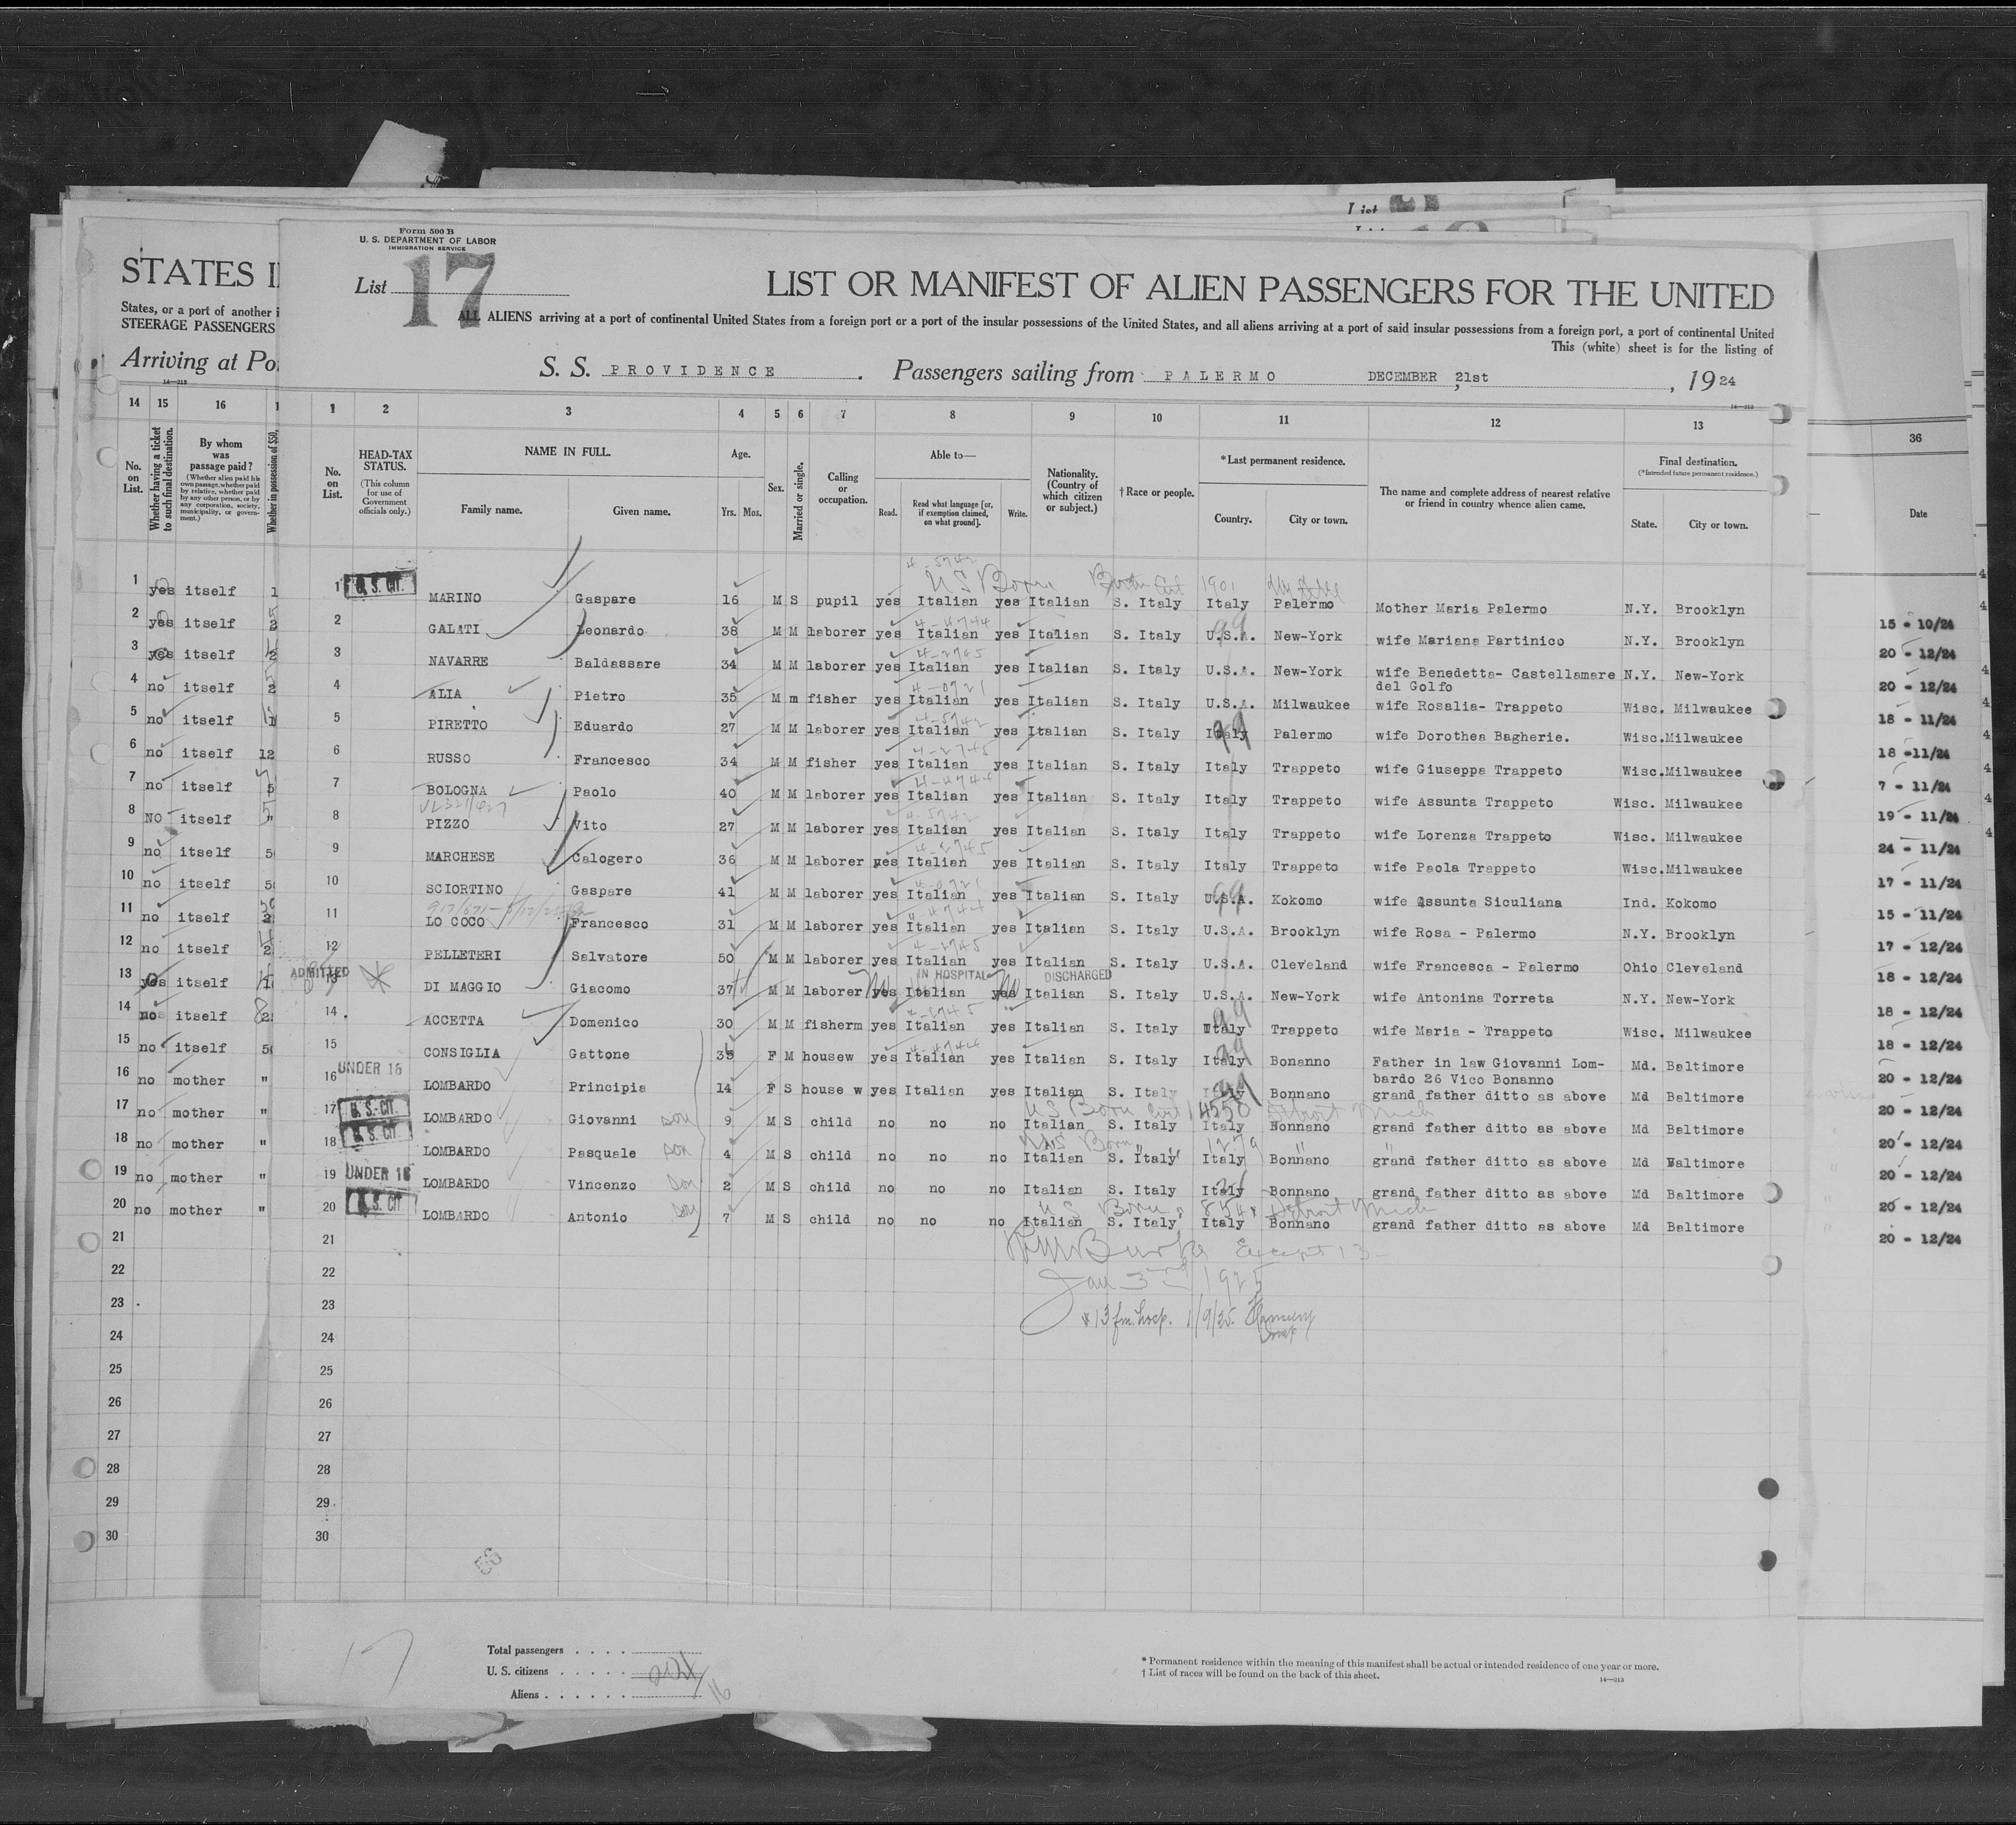 Form 500 B
U. S. DEPARTMENT OF LABOR
IMMIGRATION SERVICE
List 17
LIST OR MANIFEST OF ALIEN PASSENGERS FOR THE UNITED
ALL ALIENS arriving at a port of continental United States from a foreign port or a port of the insular possessions of the United States, and all aliens arriving at a port of said insular possessions from a foreign port, a port of continental United
This (white) sheet is for the listing of
S. S. PROVIDENCE. Passengers sailing from PALERMO DECEMBER 21st, 1924
14—213
1 2 3 4 5 6 7 8 9 10 11 12 13
No. on List.
HEAD-TAX STATUS.
(This column for use of Government officials only.)
NAME IN FULL.
Family name. Given name.
Age.
Yrs. Mos.
Sex.
Married or single.
Calling or occupation.
Able to—
Read. Read what language [or, if exemption claimed, on what ground]. Write.
Nationality. (Country of which citizen or subject.)
†Race or people.
*Last permanent residence.
Country. City or town.
The name and complete address of nearest relative or friend in country whence alien came.
Final destination.
(*Intended future permanent residence.)
State. City or town.
US Born 1901
1 U. S. CIT. MARINO Gaspare 16 M S pupil yes Italian yes Italian S. Italy Italy Palermo Mother Maria Palermo N.Y. Brooklyn
2 GALATI Leonardo 38 M M laborer yes Italian yes Italian S. Italy U.S.A. New-York wife Mariana Partinico N.Y. Brooklyn
3 NAVARRE Baldassare 34 M M laborer yes Italian yes Italian S. Italy U.S.A. New-York wife Benedetta- Castellamare del Golfo N.Y. New-York
4 ALIA Pietro 35 M m fisher yes Italian yes Italian S. Italy U.S.A. Milwaukee wife Rosalia- Trappeto Wisc. Milwaukee
5 PIRETTO Eduardo 27 M M laborer yes Italian yes Italian S. Italy Italy Palermo wife Dorothea Bagherie. Wisc. Milwaukee
6 RUSSO Francesco 34 M M fisher yes Italian yes Italian S. Italy Italy Trappeto wife Giuseppa Trappeto Wisc. Milwaukee
7 BOLOGNA Paolo 40 M M laborer yes Italian yes Italian S. Italy Italy Trappeto wife Assunta Trappeto Wisc. Milwaukee
8 PIZZO Vito 27 M M laborer yes Italian yes Italian S. Italy Italy Trappeto wife Lorenza Trappeto Wisc. Milwaukee
9 MARCHESE Calogero 36 M M laborer yes Italian yes Italian S. Italy Italy Trappeto wife Paola Trappeto Wisc. Milwaukee
10 SCIORTINO Gaspare 41 M M laborer yes Italian yes Italian S. Italy U.S.A. Kokomo wife Assunta Siculiana Ind. Kokomo
11 LO COCO Francesco 31 M M laborer yes Italian yes Italian S. Italy U.S.A. Brooklyn wife Rosa - Palermo N.Y. Brooklyn
12 PELLETERI Salvatore 50 M M laborer yes Italian yes Italian S. Italy U.S.A. Cleveland wife Francesca - Palermo Ohio Cleveland
ADMITTED IN HOSPITAL DISCHARGED
13 DI MAGGIO Giacomo 37 M M laborer yes Italian yes Italian S. Italy U.S.A. New-York wife Antonina Torreta N.Y. New-York
14 ACCETTA Domenico 30 M M fisherm yes Italian yes Italian S. Italy Italy Trappeto wife Maria - Trappeto Wisc. Milwaukee
15 CONSIGLIA Gattone 35 F M housew yes Italian yes Italian S. Italy Italy Bonanno Father in law Giovanni Lombardo 26 Vico Bonanno Md. Baltimore
16 UNDER 16 LOMBARDO Principia 14 F S house w yes Italian yes Italian S. Italy Italy Bonnano grand father ditto as above Md Baltimore
US Born 14550 Detroit Mich
17 U. S. CIT. LOMBARDO Giovanni son 9 M S child no no no Italian S. Italy Italy Bonnano grand father ditto as above Md Baltimore
US Born
18 U. S. CIT. LOMBARDO Pasquale son 4 M S child no no no Italian S. Italy Italy Bonnano grand father ditto as above Md Baltimore
19 UNDER 16 LOMBARDO Vincenzo son 2 M S child no no no Italian S. Italy Italy Bonnano grand father ditto as above Md Baltimore
US Born Detroit Mich
20 U. S. CIT LOMBARDO Antonio son 7 M S child no no no Italian S. Italy Italy Bonnano grand father ditto as above Md Baltimore
21 Burke Except 13
22 Jan 3rd 1925
23 #13 fm. hosp. 1/9/25
24
25
26
27
28
29
30
17
Total passengers
U. S. citizens
Aliens
16
* Permanent residence within the meaning of this manifest shall be actual or intended residence of one year or more.
† List of races will be found on the back of this sheet.
14—213
STATES I
States, or a port of another i
STEERAGE PASSENGERS
Arriving at Po
14—213
14 15 16
No. on List.
Whether having a ticket to such final destination.
By whom was passage paid?
(Whether alien paid his own passage, whether paid by relative, whether paid by any other person, or by any corporation, society, municipality, or government.)
Whether in possession of $50,
1 yes itself
2 yes itself
3 yes itself
4 no itself
5 no itself
6 no itself
7 no itself
8 NO itself
9 no itself
10 no itself
11 no itself
12 no itself
13 yes itself
14 no itself
15 no itself
16 no mother "
17 no mother "
18 no mother "
19 no mother "
20 no mother "
21
22
23
24
25
26
27
28
29
30
36
Date
15 - 10/24
20 - 12/24
20 - 12/24
18 - 11/24
18 -11/24
7 - 11/24
19 - 11/24
24 - 11/24
17 - 11/24
15 - 11/24
17 - 12/24
18 - 12/24
18 - 12/24
18 - 12/24
20 - 12/24
20 - 12/24
20 - 12/24
20 - 12/24
20 - 12/24
20 - 12/24